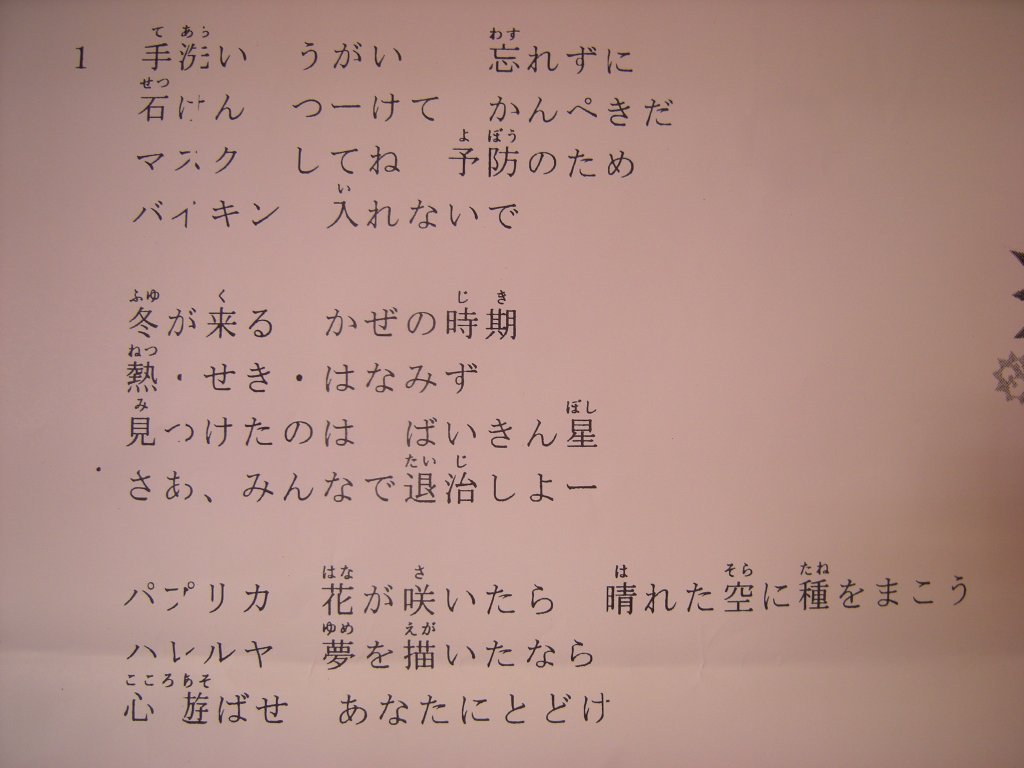 1 手洗い うがい 忘れずに
石けん つーけて かんぺきだ
マスク してね 予防のため
バイキン 入れないで
冬が来る かぜの時期
熱・せき・はなみず
見つけたのは ばいきん星
さあ、みんなで退治しよー
パプリカ 花が咲いたら 晴れた空に種をまこう
ハレルヤ 夢を描いたなら
心 遊ばせ あなたにとどけ